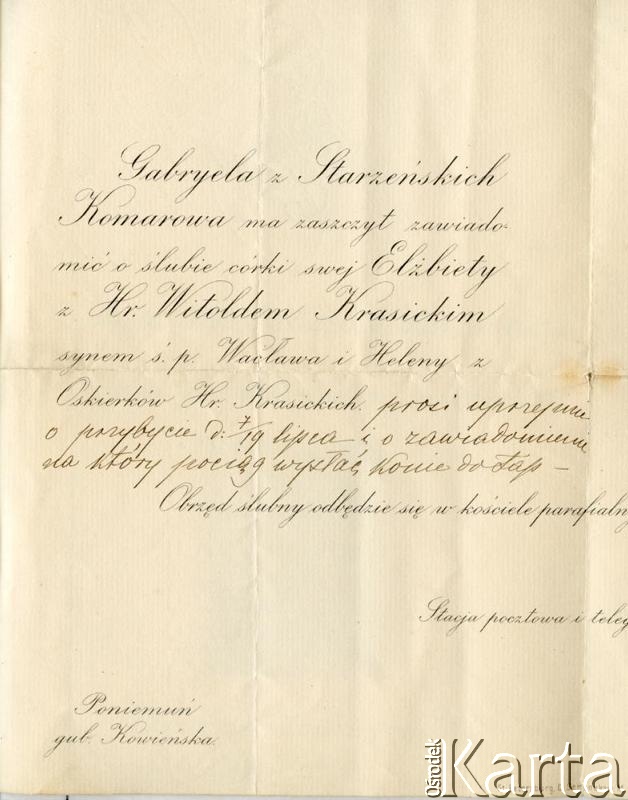 Gabryela z Starzeńskich
Komarowa ma zaszczyt zawiado-
mić o ślubie córki swej Elżbiety
z Hr. Witoldem Krasickim
synem ś. p. Wacława i Heleny z
Oskierków Hr. Krasickich. prosi uprzejmie
o przybycie d: 7/19 lipca i o zawiadomienie
na który pociąg wysłać konie do Łap –
Obrzęd ślubny odbędzie się w kościele parafialny
Stacja pocztowa i teleg
Poniemuń
gub. Kowieńska.
Ośrodek
Karta